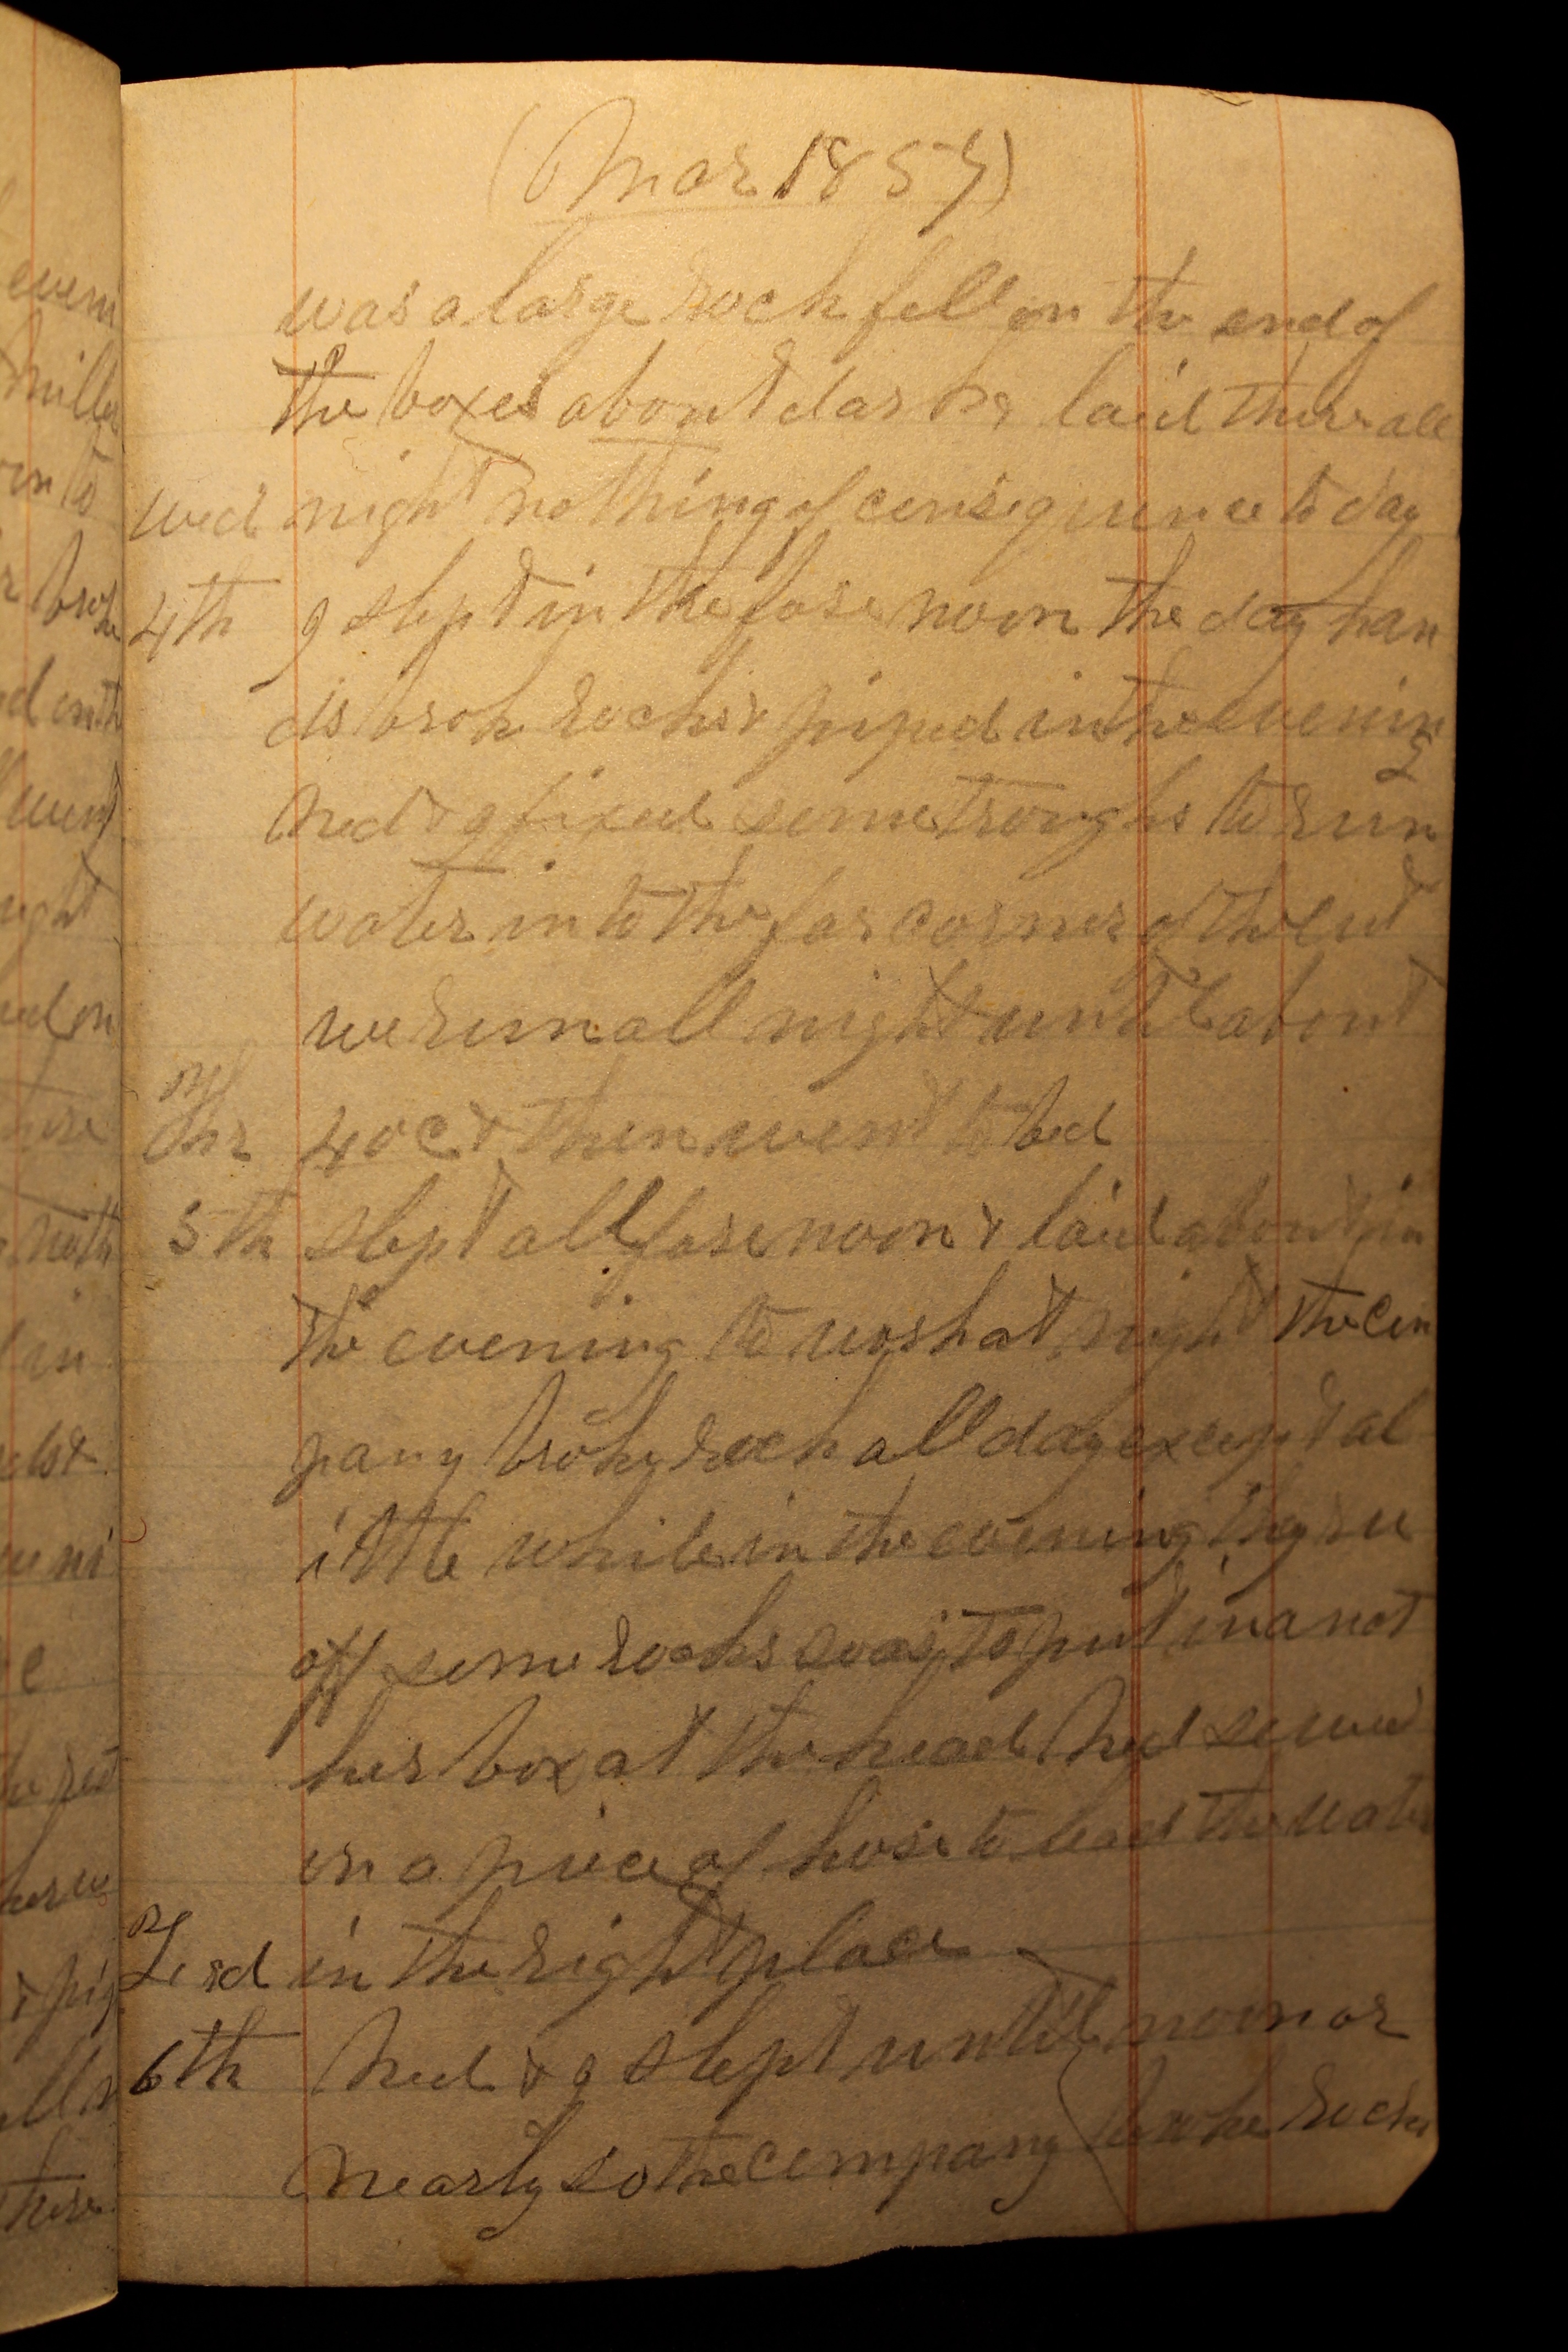 (Mar 1857)
was a large rock fell on the end of
the boxes about dark & laid there all
wed night nothing of consequence to day
4th I slept in the fore noon the day han
ds broke rocks & piped in the evening
Ned & I fixed some troughs to run
water into the far corner of the cut
we run all night until about
Thr 4 oc & then went to bed
5th slept all fore noon & laid about in
the evening to wash at night the com
pany broke rock all day except a l
ittle while in the evening they
off some rocks so as to put in anot
her box at the head Ned sewed
on a piece of hose to lead the water
in the right place
6th Ned & I slept until noon or
nearly so the company broke rocks